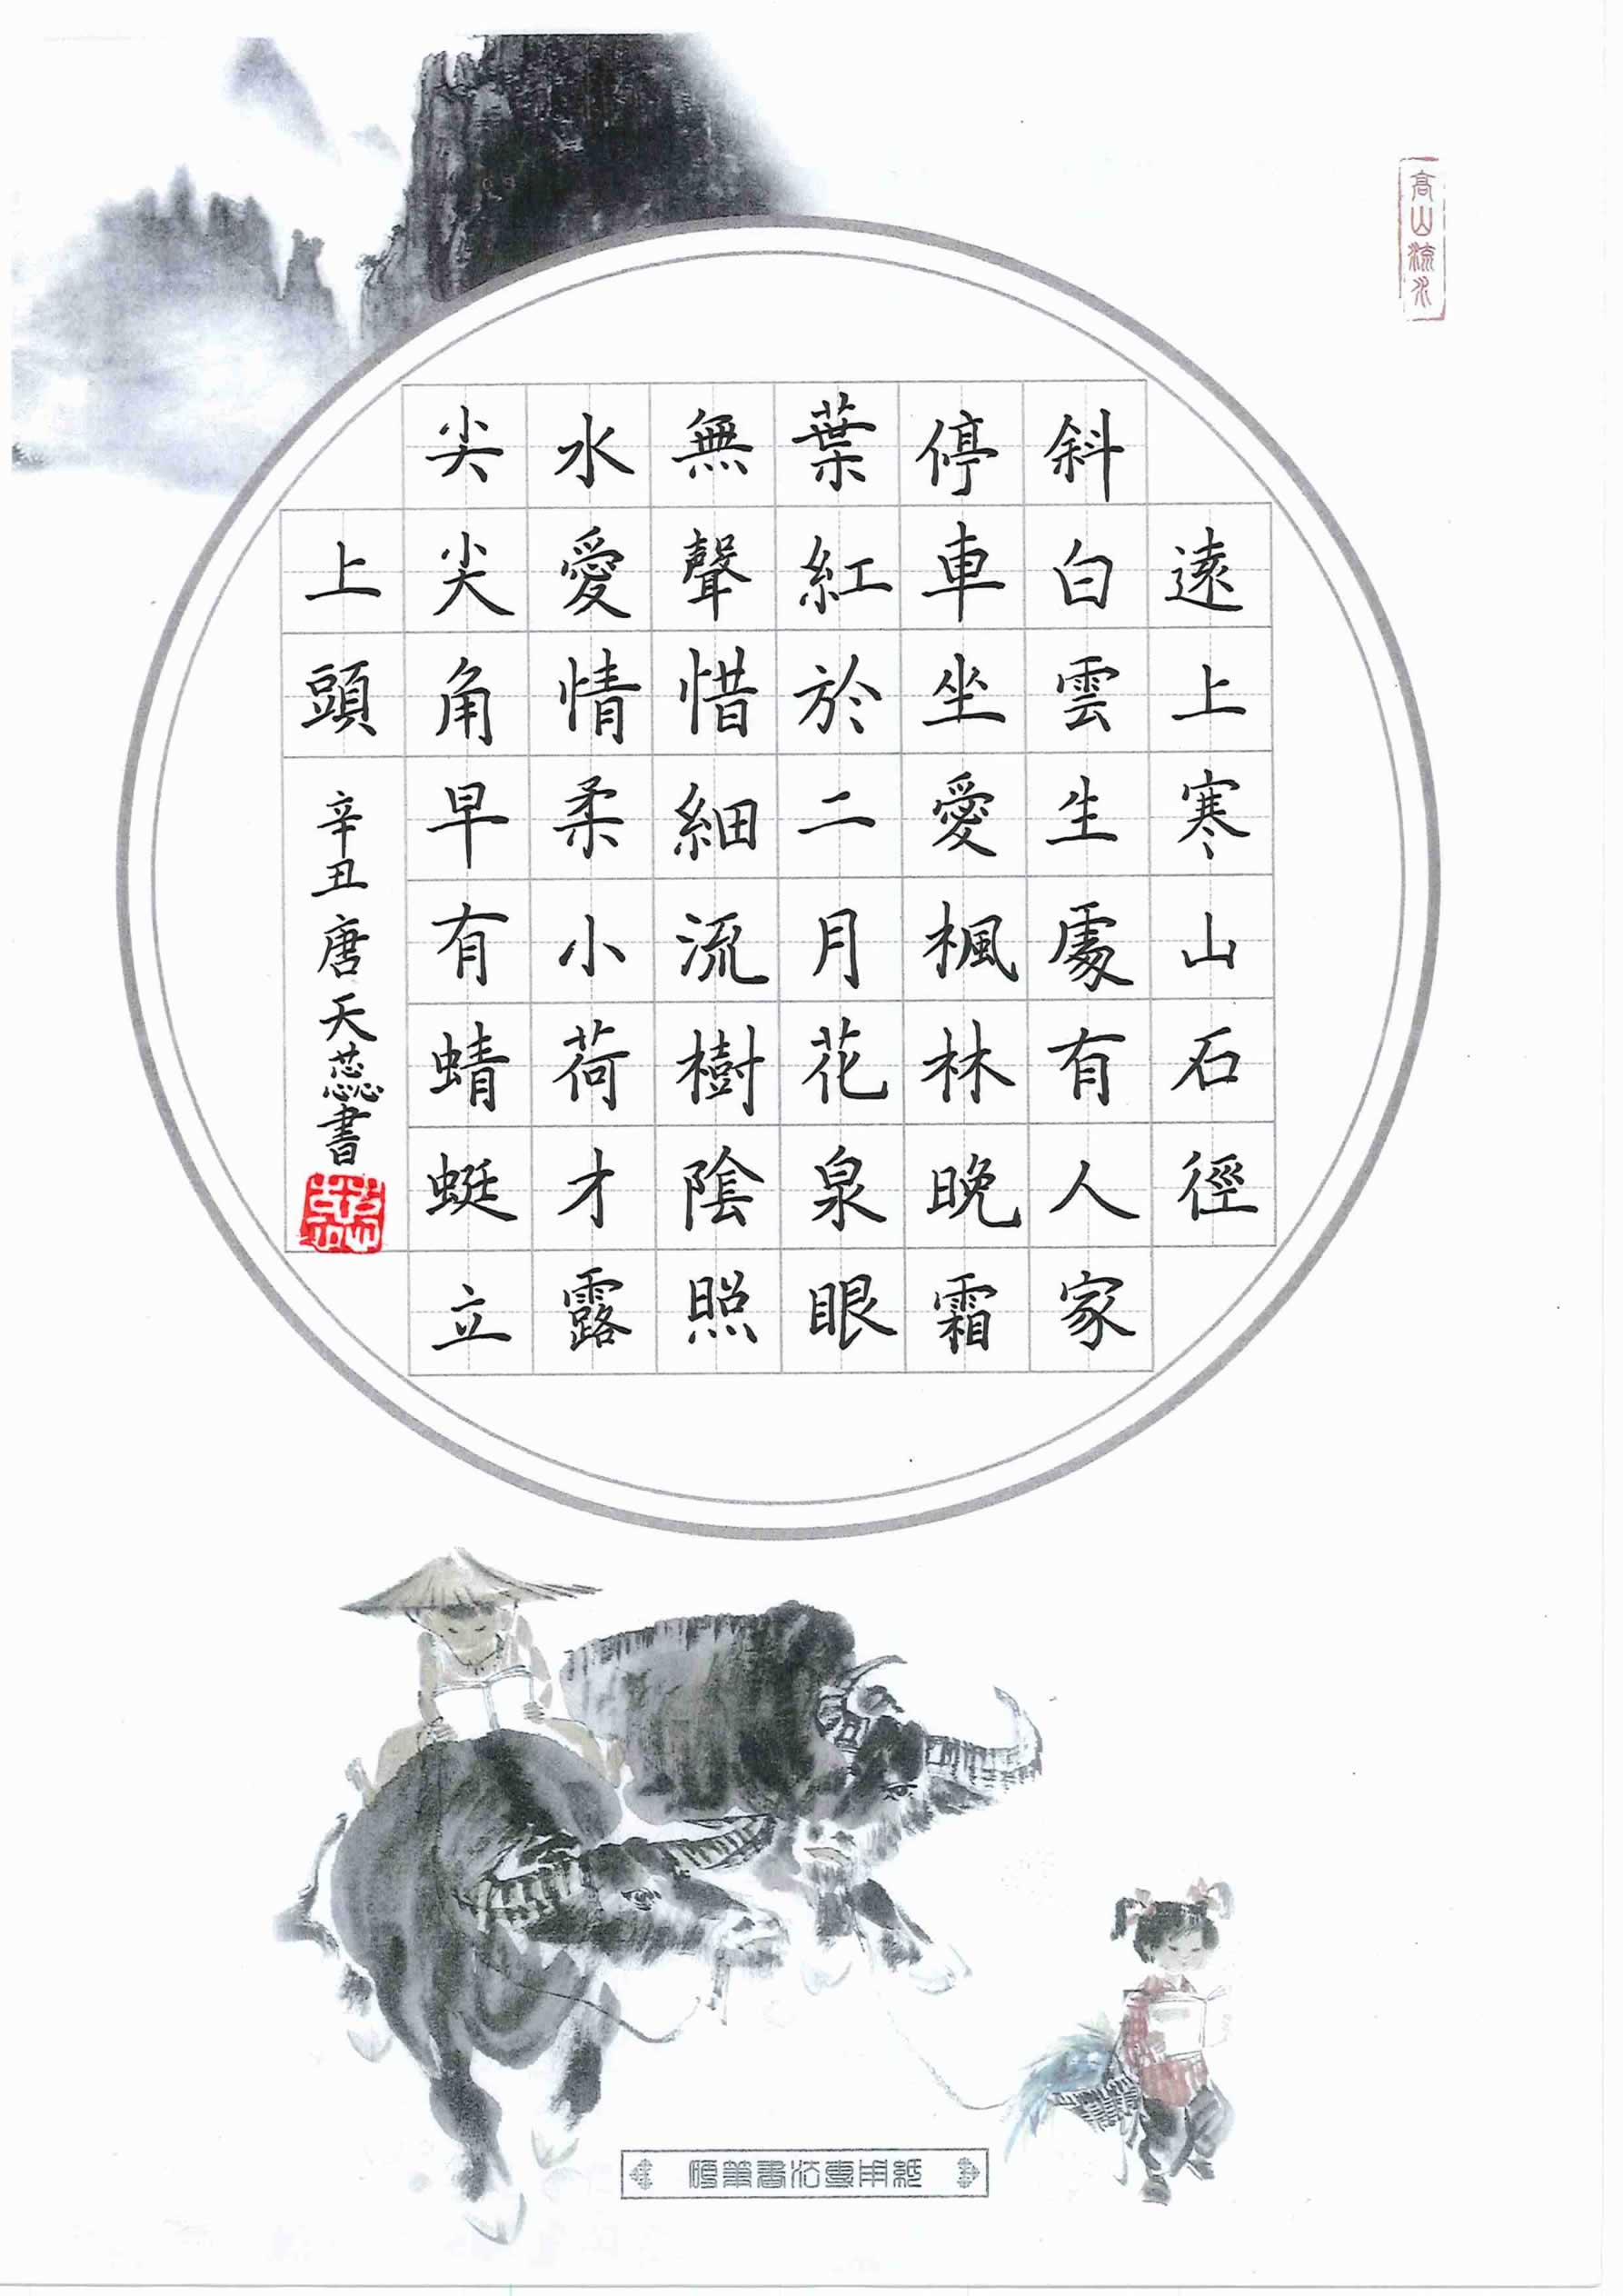 高山流水
遠上寒山石徑
斜白雲生處有人家
停車坐愛楓林晚霜
葉紅於二月花泉眼
無聲惜細流樹陰照
水愛情柔小荷才露
尖尖角早有蜻蜓立
上頭
辛丑唐天蕊書
硬筆書法專用紙